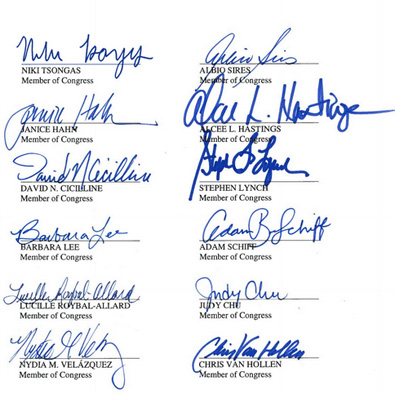 Niki Tsongas Albio Sires
NIKI TSONGAS ALBIO SIRES
Member of Congress Member of Congress
Janice Hahn Alcee L. Hastings
JANICE HAHN ALCEE L. HASTINGS
Member of Congress Member of Congress
David N Cicilline Stephen F Lynch
DAVID N. CICILLINE STEPHEN LYNCH
Member of Congress Member of Congress
Barbara Lee Adam B Schiff
BARBARA LEE ADAM SCHIFF
Member of Congress Member of Congress
Lucille Roybal-Allard Judy Chu
LUCILLE ROYBAL-ALLARD JUDY CHU
Member of Congress Member of Congress
Nydia M Velázquez Chris Van Hollen
NYDIA M. VELÁZQUEZ CHRIS VAN HOLLEN
Member of Congress Member of Congress